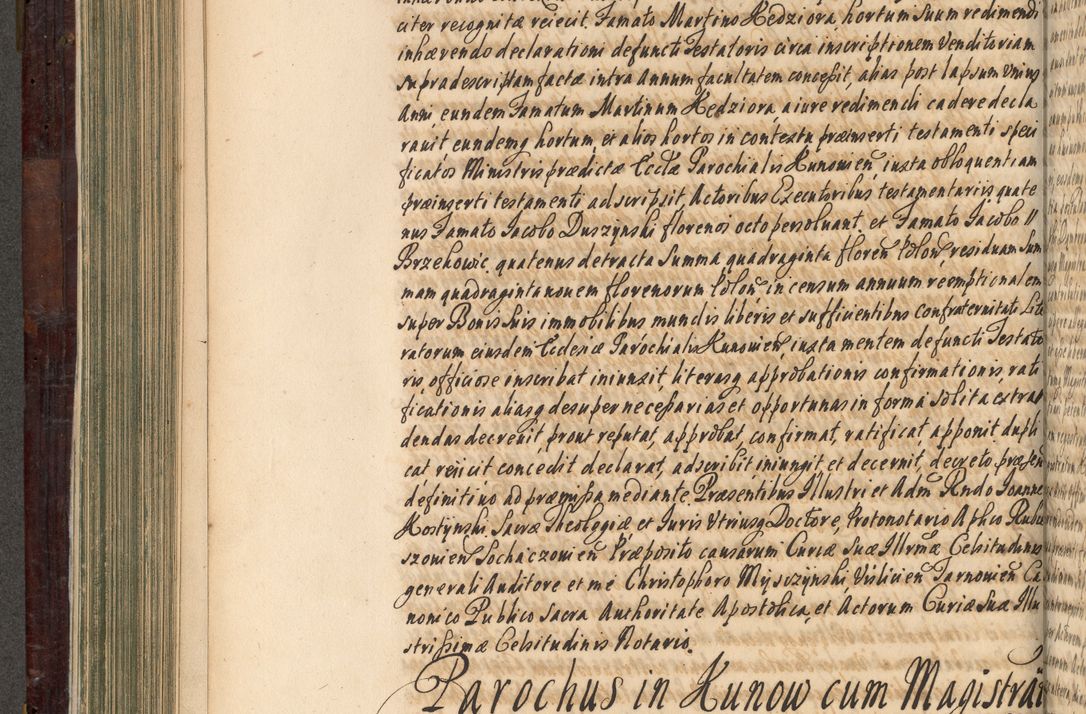 citer recognitæ reiecit, Famato Martino Kedziora hortum suum redimendi
inhærendo declarationi defuncti Testatoris circa inscriptionem Venditoriam
supradescriptam factæ intra Annum facultatem conceßit, alias post lapsum Vnius
Anni eundem Famatum Martinum Kedziora a iure redimendi cadere decla
rauit eundemq hortum, et alios hortos in contextu præinserti testamenti speci
ficatos Ministris prædictæ Eccłæ Parochialis Kunouien iuxta obloquentiam
præinserti testamenti adscripsit, Actoribus Executoribus testamentariis quate
nus Famato Jacobo Duszynski florenos octo persoluant, et Famato Jacobo
Brzekowic, quatenus detracta Summa quadraginta floren Polon residuam Sum
mam quadraginta nouem florenorum Polon in censum annuum réemptionalem
super Bonis suis immobilibus mundis liberis et sufficientibus confraternitati Lite
ratorum eiusdem Ecclesiæ Parochialis Kunouien, iuxta mentem defuncti Testato
ris, officiose inscribat iniunxit, literasq approbationis confirmationis, rati
ficationis aliasq desuper neceßarias et opportunas in forma solita extra
dendas decreuit, prout reputat, approbat, confirmat, ratificat, apponit dupli
cat reiicit concedit declarat, adscribit iniungit et decernit, decreto præsen
definitiuo ad præmißa mediante. Præsentibus Illustri et Adm Rndo Joanne
Kostynski Sacræ Theologiæ et Juris Vtriusq Doctore, Protonotario Aplico
szouien Sochaczouien Præposito causarum Curiæ Suæ Illrmæ Celsitudinis
generali Auditore et me Christophoro Mysczynski Vislicien Tarnouien Ca
nonico Publico Sacra Authoritate Apostolica, et Actorum Curiæ Suæ Illu
strißimæ Celsitudinis Notario.
Parochus in Kunow cum Magistra